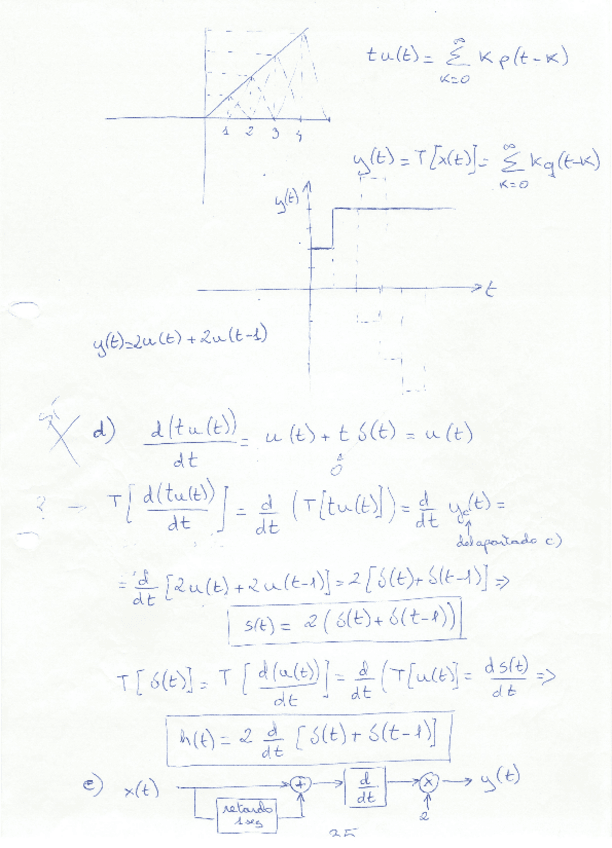 t u(t) = ∞ Σ K=0 K p(t-K)
1 2 3 4
y(t) = T[x(t)] = ∞ Σ K=0 K q(t-K)
y(t)
t
y(t)=2u(t)+2u(t-1)
d) d(t u(t))/dt = u(t) + t δ(t) = u(t)
0
? T[d(tu(t))/dt] = d/dt (T[tu(t)]) = d/dt yc(t) =
del apartado c)
= d/dt [2u(t)+2u(t-1)] = 2[δ(t)+δ(t-1)] ⇒
s(t) = 2(δ(t)+δ(t-1))
T[δ(t)] = T[d(u(t))/dt] = d/dt (T[u(t)] = ds(t)/dt ⇒
h(t) = 2 d/dt [δ(t)+δ(t-1)]
e) x(t) + d/dt × y(t)
retardo
1 seg
2